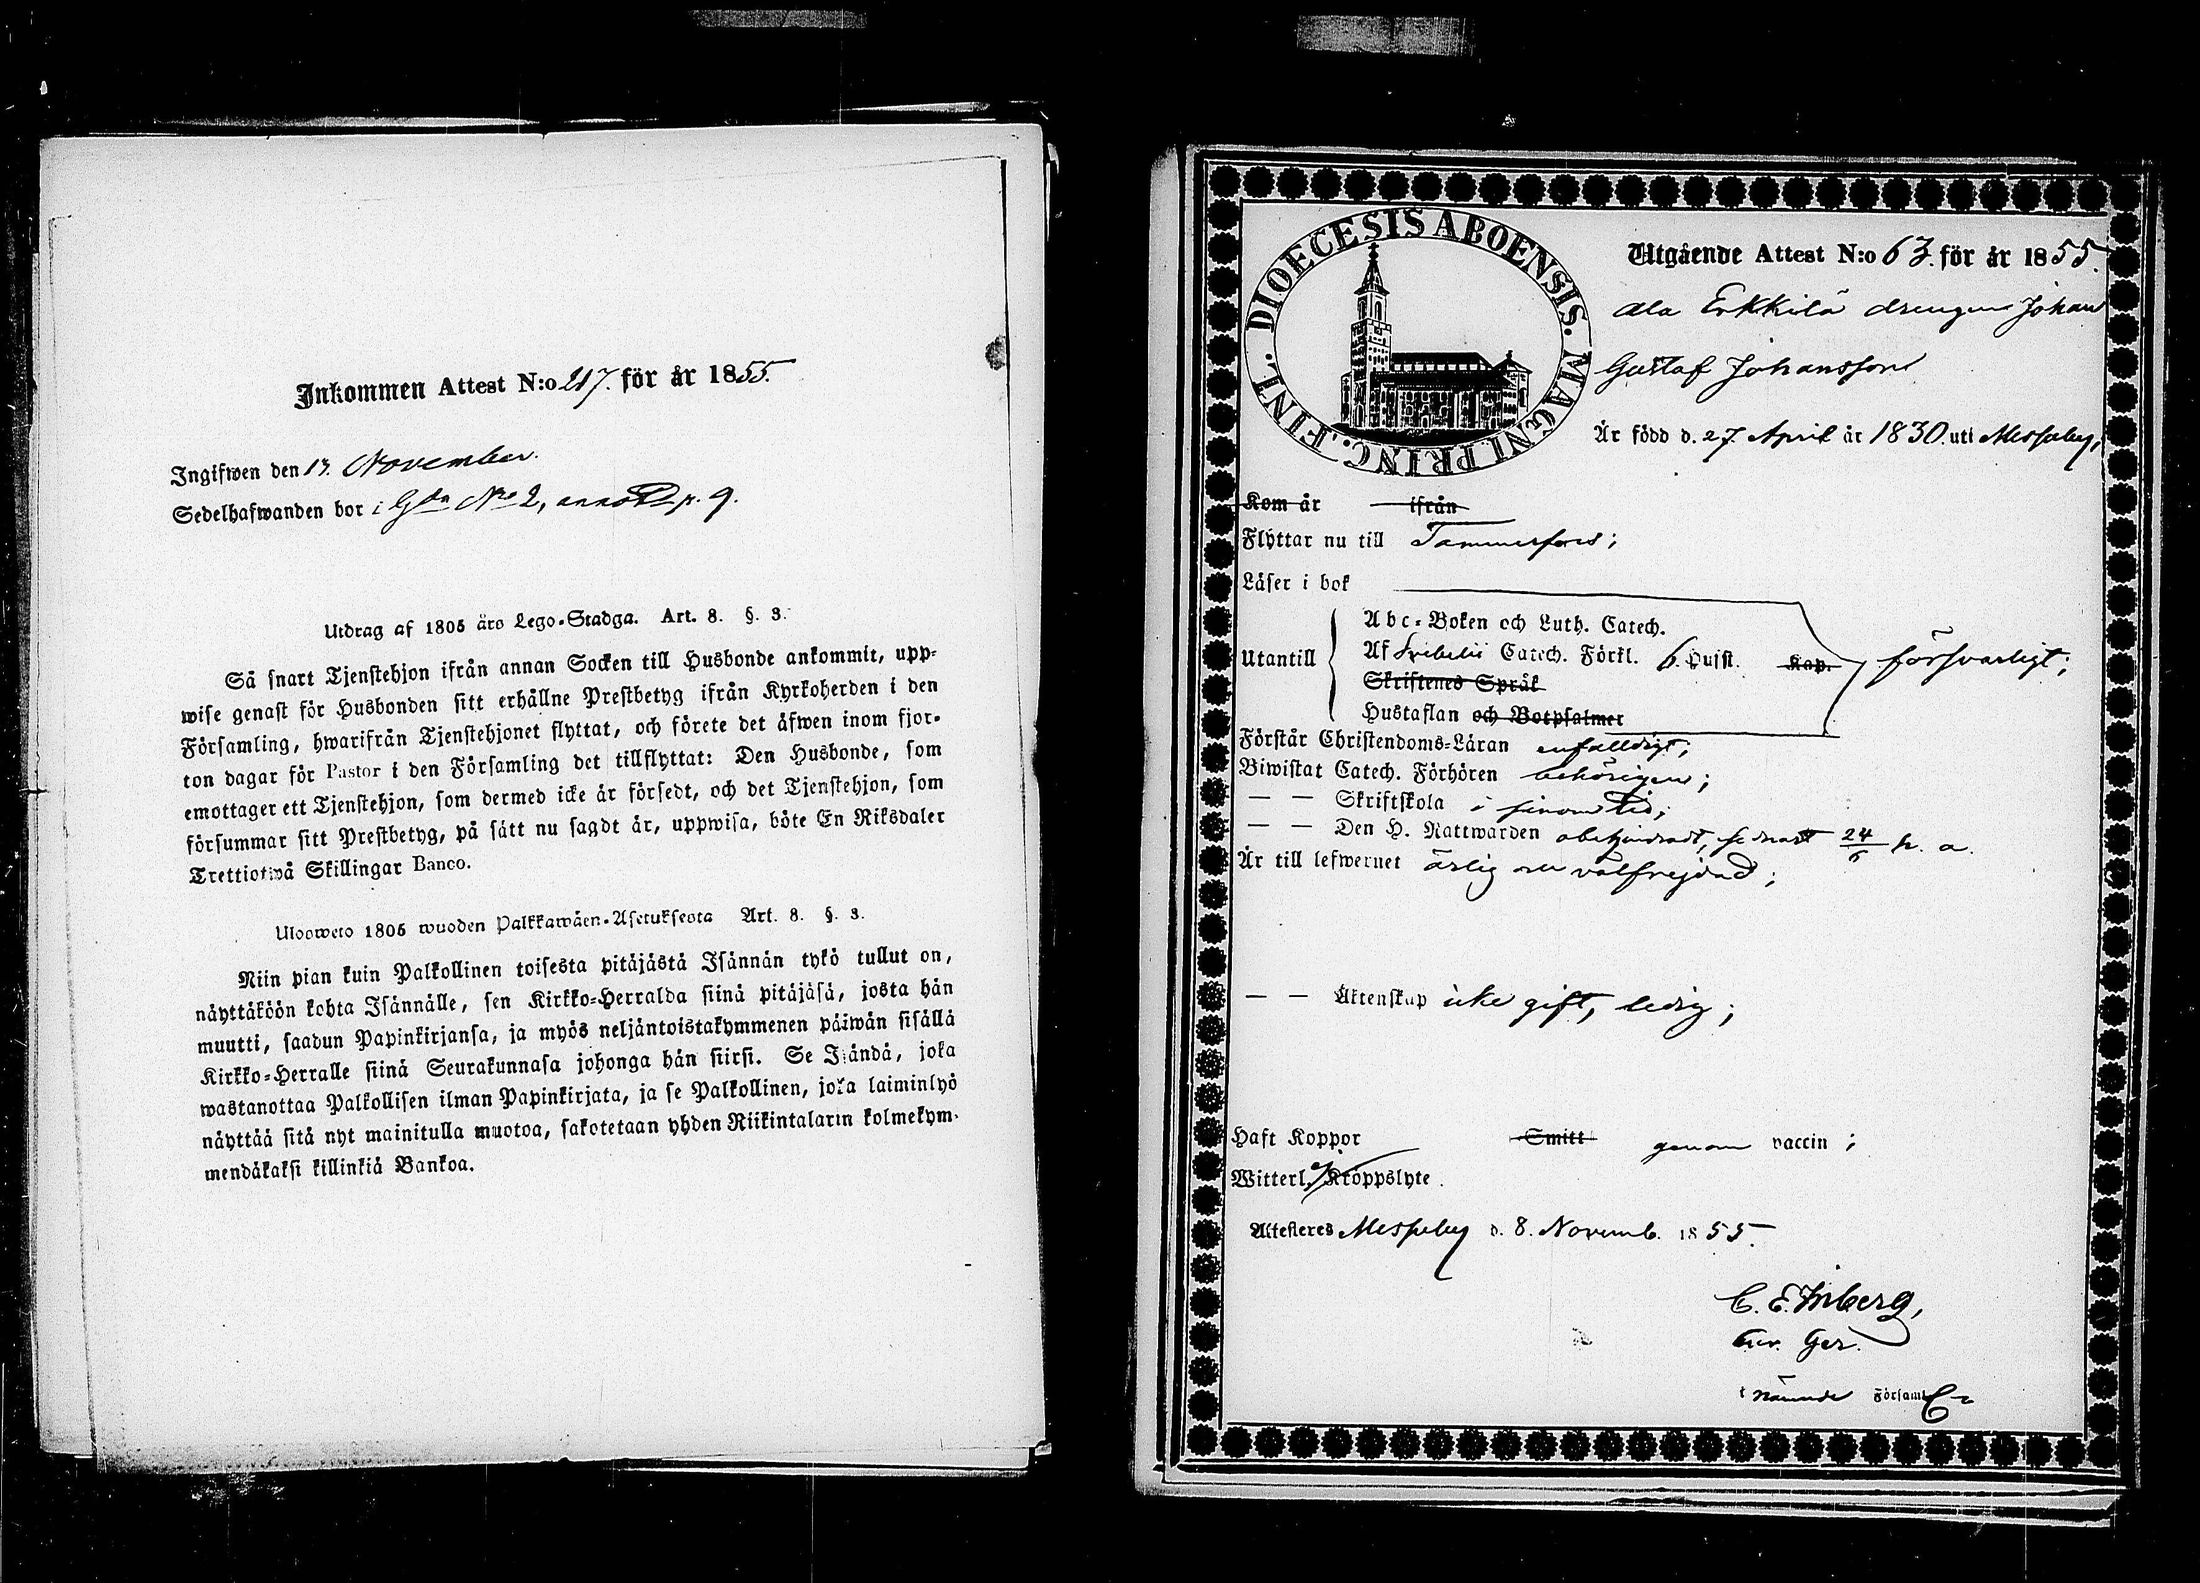 Inkommen Attest N:o 217. för år 1855.
Ingifwen den 13. November.
Sedelhafwanden bor i Gda No 2, annot. p. 9.
Utdrag af 1805 års Lego-Stadga. Art. 8. §. 3.
Så snart Tjenstehjon ifrån annan Socken till Husbonde ankommit, upp-
wise genast för Husbonden sitt erhållne Prestbetyg ifrån Kyrkoherden i den
Församling, hwarifrån Tjenstehjonet flyttat, och förete det äfwen inom fjor-
ton dagar för Pastor i den Församling det tillflyttat: Den Husbonde, som
emottager ett Tjenstehjon, som dermed icke är försedt, och det Tjenstehjon, som
försummar sitt Prestbetyg, på sätt nu sagdt är, uppwisa, böte En Riksdaler
Trettiotwå Skillingar Banco.
Ulosweto 1805 wuoden Palkkawäen-Asetuksesta Art. 8. §. 3.
Niin pian kuin Palkollinen toisesta pitäjästä Isännän tykö tullut on,
näyttäköön kohta Isännälle, sen Kirkko-Herralda siinä pitäjäsä, josta hän
muutti, saadun Papinkirjansa, ja myös neljäntoistakymmenen päiwän sisällä
Kirkko-Herralle siinä Seurakunnasa johonga hän siirsi. Se Isändä, joka
wastanottaa Palkollisen ilman Papinkirjata, ja se Palkollinen, joka laiminlyö
näyttää sitä nyt mainitulla muotoa, sakotetaan yhden Riikintalarin kolmekym-
mendäkaksi killinkiä Bankoa.
DIOECESIS ABOENSIS. MAGNI PRINC. FINL.
Utgående Attest N:o 63. för år 1855.
Ala Erkkilä drengen Johan
Gustaf Johansson
Är född d. 27. April år 1830 uti Messuby,
Kom år ifrån
Flyttar nu till Tammerfors;
Läser i bok
Abc-Boken och Luth. Catech.
Utantill Af Svebelii Catech. Förkl. 6. Hufst. Kap. försvarligt;
Skriftenes Språk
Hustaflan och Botpsalmer
Förstår Christendoms-Läran enfalldigt;
Biwistat Catech. Förhören behörigen;
— — Skriftskola i sinom tid;
— — Den H. Nattwarden obehindradt, sednast 24/6 h. a.
Är till lefwernet ärlig och välfrejdad;
— — Äktenskap icke gift, ledig;
Haft Koppor Smitt genom vaccin;
Witterl. ej Kroppslyte.
Attesteres Messuby d. 8. Novemb. 1855.
C. E. Inberg,
i nämnde Församl.